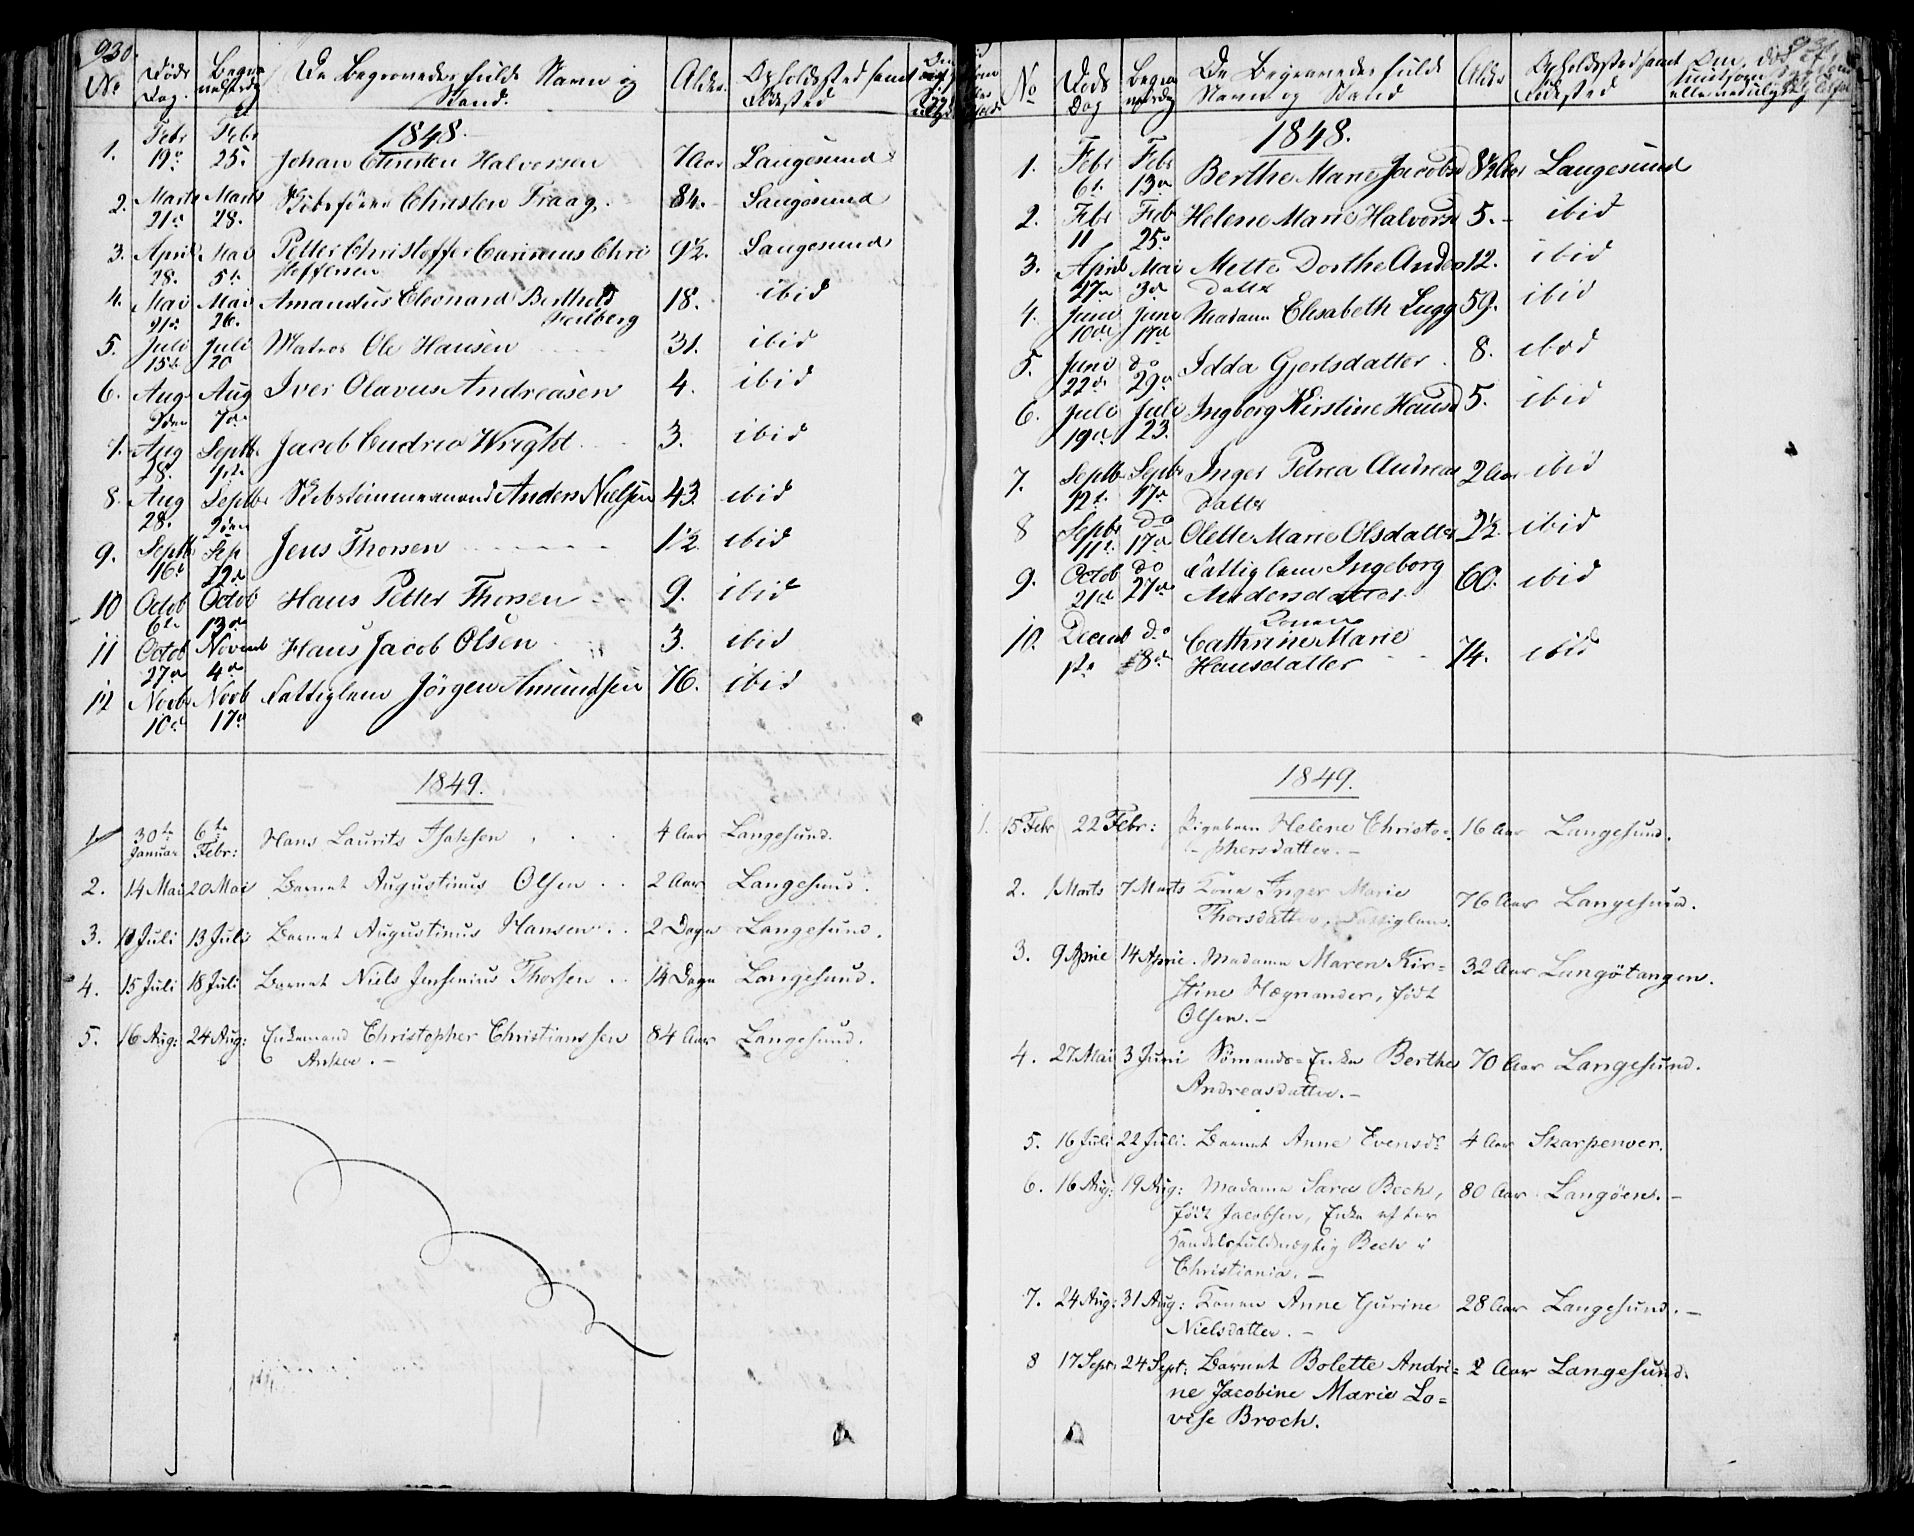 930.
No Døds Dag. Begravelsesdag De Begravedes fulde Navn og Stand. Alder. Opholdssted samt Fødested
1848.
1. Febr 19de Febr 25. Johan Christen Halvorsen 7 Aar Langesund
2. Marts 21de Marts 28. Skibsfører Christen Fraag. 84. Langesund
3. April 28. Mai 5te Petter Christoffer Carinius Chri
stoffersen 9½. Langesund
4. Mai 21de Mai 26. Amandus Eleonard Berthold
Heilberg 18. ibid
5. Juli 15de Juli 20 Matros Ole Hansen 31. ibid
6. Aug 2den Aug 7de Iver Olavus Andreasen 4. ibid
7. Aug 28. Septb. 1ste Jacob Andrea Wright 3. ibid
8. Aug 28. Septbr 2den Skibstømmermand Anders Nielsen 43. ibid
9. Septb 16de Sep 22de Jens Thorsen 1½. ibid
10 Octob 6te Octob 13de Hans Petter Thorsen 9. ibid
11 Octob 27de Novemb 4de Hans Jacob Olsen 3. ibid
12 Novb 10de Novb 17de Fattiglem Jörgen Amundsen 76. ibid
1849.
1. 30te Januar 6te Febr: Hans Laurits Isaksen 4 Aar Langesund.
2. 14 Mai 20 Mai Barnet Augustinus Olsen 2 Aar Langesund.
3. 10 Juli 13 Juli Barnet Augustinus Hansen 2 Dage Langesund.
4. 15 Juli 18 Juli Barnet Niels Jensenius Thorsen 14 Dage Langesund.
5. 16 Aug: 24 Aug: Enkemand Christopher Christianssen 84 Aar Langesund.
Anker.
No Døds Dag Begravelsesdag De Begravedes fulde
Navn og Stand Alder Opholdssted samt Fødested
1848.
1. Febr 6te Febr 13de Berthe Marie Jacobsd 8½ Aar Langesund
2. Febr 11 Febr 25de Helene Marie Halvorsd 5. ibid
3. April 27de Mai 3de Mette Dorthe Anders
datter 12. ibid
4. Juni 10de Juni 17de Madam Elisabeth Lugg 59. ibid
5. Juni 22de do 29de Idda Gjertsdatter 8. ibid
6. Juli 19de Juli 23. Ingborg Kirstine Hansd 5. ibid
7. Septb 12te Septbr 17de Inger Petrea Andreas
datter 2 Aar ibid
8 Septbr 11te do 17de Olette Marie Olsdatter 2½. ibid
9. Octob 21de do 27de Fattiglem Ingeborg
Andersdatter 60. ibid
10. Decemb 1ste do 8de Konen
Cathrine Marie
Hansdatter 74. ibid
1849.
1. 15 Febr 22 Febr: Pigebarn Helene Christo=
phersdatter. 16 Aar Langesund.
2. 1 Marts 7 Marts Kone Inger Marie
Thorsdatter, Fattiglem. 76 Aar Langesund.
3. 9 April 14 April. Madame Maren Kir=
stine Hægnander, født
Olsen. 32 Aar Langötangen.
4. 27 Mai 3 Juni Sömands=Enke Berthe
Andreasdatter. 70 Aar Langesund.
5. 16 Juli 22 Juli. Barnet Anne Evensdr 4 Aar Skarpenoer.
6. 16 Aug: 19 Aug: Madame Sara Bech,
født Jacobsen, Enke efter
Handelsfuldmægtig Bech i
Christiania. 80 Aar Langöen.
7. 24 Aug: 31 Aug: Konen Anne Gurine
Nielsdatter. 28 Aar Langesund.
8 17 Sept: 24 Sept: Barnet Bolette Andri=
ne Jacobine Marie Lo=
vise Broch. 2 Aar Langesund.